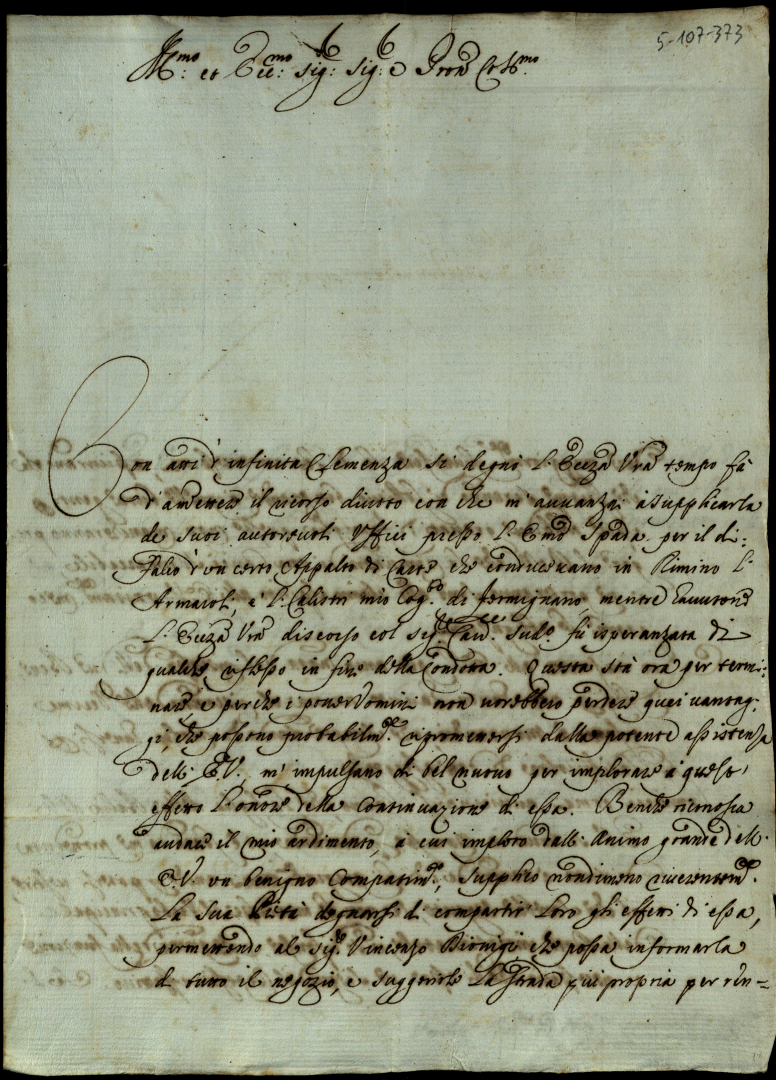 5-107-373
Ill:mo et Ecc:mo Sig: Sig: e Pron Col:mo
Con atti d'infinita Clemenza si degnò l'Eccza Vra tempo fà
d'ammettere il ricorso divoto con che m'avvanzai à supplicarla
de suoi autorevoli Uffici presso l'Emo Spada per il di-
falio d'un certo Appalto di Carte che conducevano in Rimino l'
Armaroli, e l' Calistri mio Cog:to di Fermignano, mentre
l'Eccza Vra discorso col sig:r Card. sudo fù isperanzata di
qualche riflesso in fine della Condotta. Questa stà ora per termi-
nare e perche i poveri Uomini non vorebbero perdere quei vantag-
gi, che possono probabilm:te ripromettersi dalla potente assistenza
dell' E.V. m'impulsano di bel nuovo per implorare à questo
effetto l'onore della Continuazione di essa. Benche riconosca
audace il mio ardimento, à cui imploro dall' Animo grande dell'
E.V. un benigno Compatim:to, supplico nondimeno riverentem:te
La sua Pietà degnarsi di compartir Loro gli effetti di essa,
permettendo al sig:r Vincenzo Bionigi che possa informarla
di tutto il negozio, e suggerirle La strada più propria per rin-